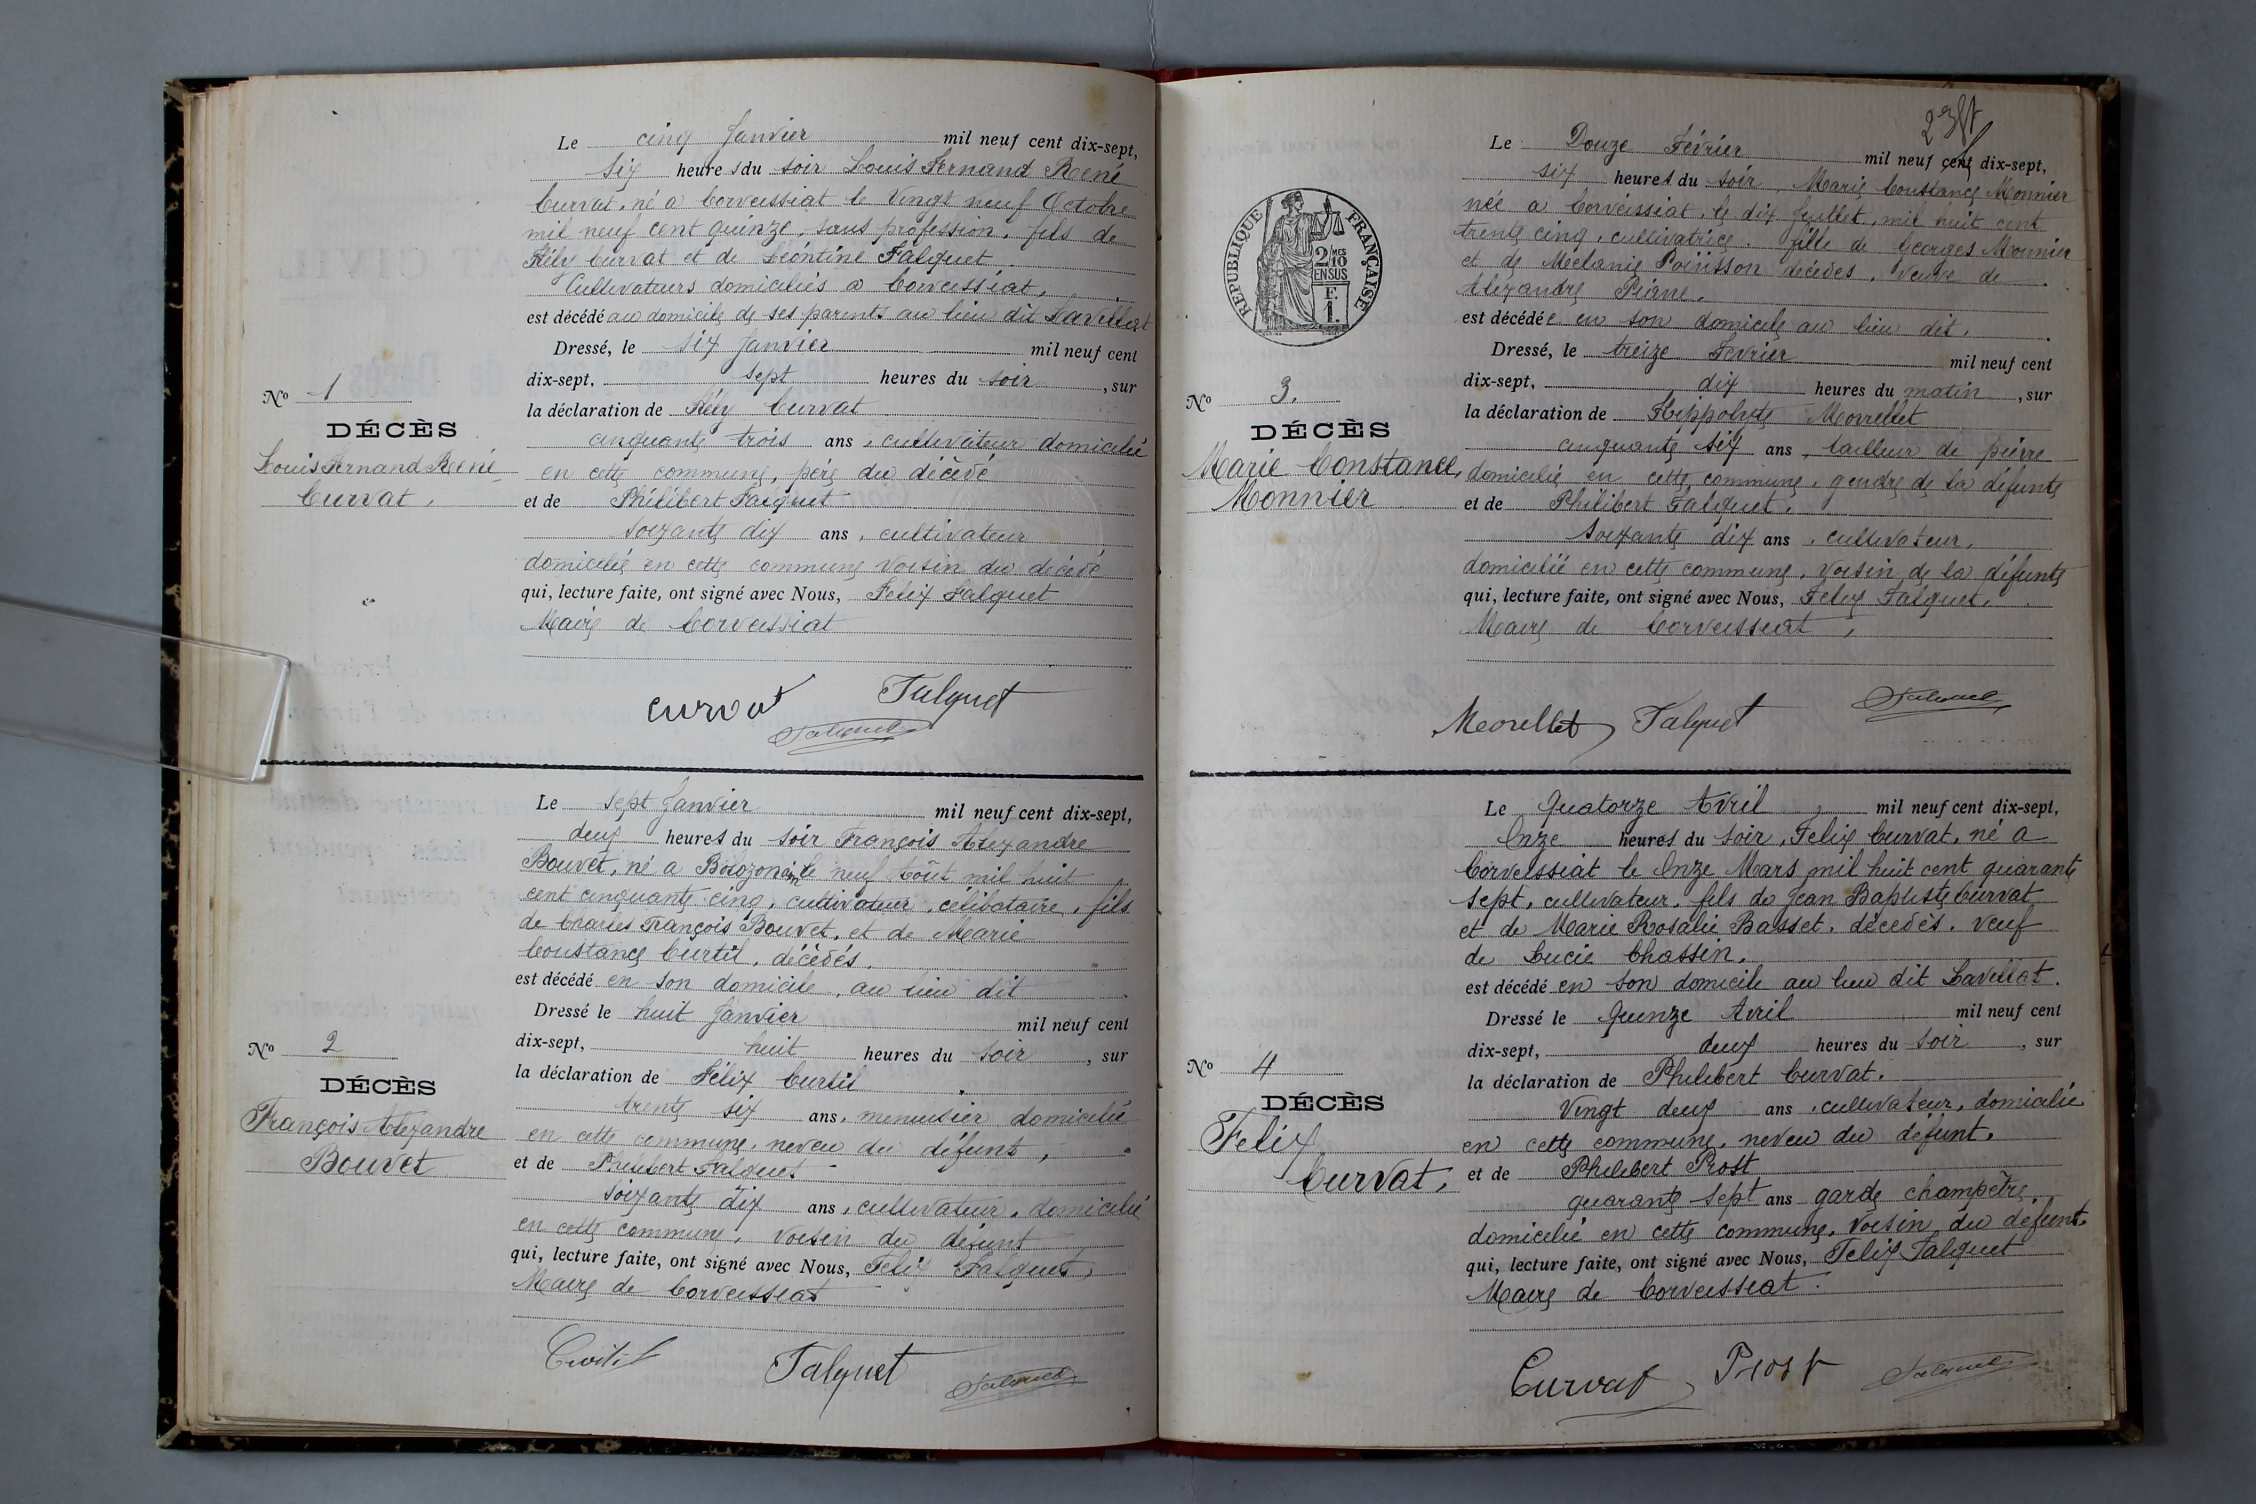 Le cinq Janvier mil neuf cent dix-sept,
six heures du soir Louis Fernand René
Curvat, né a Corveissiat le Vingt neuf Octobre
mil neuf cent quinze, sans profession, fils de
Curvat et de Léontine Falquet
Cultivateurs domiciliés a Corveissiat,
est décédé au domicile de ses parents au lieu dit Lavillat
Dressé, le six Janvier mil neuf cent
dix-sept, sept heures du soir, sur
la déclaration de Curvat
cinquante trois ans, cultivateur domicilié
en cette commune, père du décédé
et de Philibert Falquet
soixante dix ans, cultivateur
domicilié en cette commune voisin du décédé
qui, lecture faite, ont signé avec Nous, Félix Falquet
Maire de Corveissiat
Curvat Falquet
Falquet
No 1
DÉCÈS
Louis Fernand René
Curvat,
Le sept Janvier mil neuf cent dix-sept,
deux heures du soir François Alexandre
Bouvet, né a le neuf Août mil huit
cent cinquante cinq, cultivateur, célibataire, fils
de Charles François Bouvet, et de Marie
Constance Curtil, décédés.
est décédé en son domicile, au lieu dit
Dressé le huit Janvier mil neuf cent
dix-sept, huit heures du soir, sur
la déclaration de Félix Curtil
trente six ans, menuisier domicilié
en cette commune, neveu du défunt,
et de Philibert Falquet
soixante dix ans, cultivateur, domicilié
en cette commune, voisin du défunt
qui, lecture faite, ont signé avec Nous, Felix Falquet,
Maire de Corveissiat
Curtil Falquet Falquet
No 2
DÉCÈS
François Alexandre
Bouvet
Le Douze Février mil neuf cent dix-sept,
six heures du soir, Marie Constance Monnier
née a Corveissiat, le dix Juillet, mil huit cent
trente cinq, cultivatrice. fille de Georges Monnier
et de Mélanie décédés, Veuve de
Alexandre Piane.
est décédée en son domicile au lieu dit.
Dressé, le treize Février mil neuf cent
dix-sept, dix heures du matin, sur
la déclaration de Hippolyte Morellet
cinquante six ans, tailleur de pierre
domicilié en cette commune, gendre de la défunte
et de Philibert Falquet.
Soixante dix ans, cultivateur,
domicilié en cette commune, voisin de la défunte
qui, lecture faite, ont signé avec Nous, Felix Falquet,
Maire de Corveissiat,
Morellet Falquet Falquet
RÉPUBLIQUE FRANÇAISE
2/10 MES
EN SUS
F.
1.
No 3.
DÉCÈS
Marie Constance,
Monnier
Le Quatorze Avril mil neuf cent dix-sept,
Onze heures du soir, Felix Curvat, né a
Corveissiat le Onze Mars mil huit cent quarante
sept, cultivateur, fils de Jean Baptiste Curvat
et de Marie Rosalie Basset, décédés, veuf
de Lucie Chassin.
est décédé en son domicile au lieu dit Lavillat.
Dressé le Quinze Avril mil neuf cent
dix-sept, deux heures du soir, sur
la déclaration de Philibert Curvat.
Vingt deux ans, cultivateur, domicilié
en cette commune, neveu du défunt.
et de Philibert Prost
quarante sept ans garde champêtre,
domicilié en cette commune, voisin du défunt.
qui, lecture faite, ont signé avec Nous, Felix Falquet
Maire de Corveissiat.
Curvat Prost Falquet
No 4
DÉCÈS
Felix
Curvat,